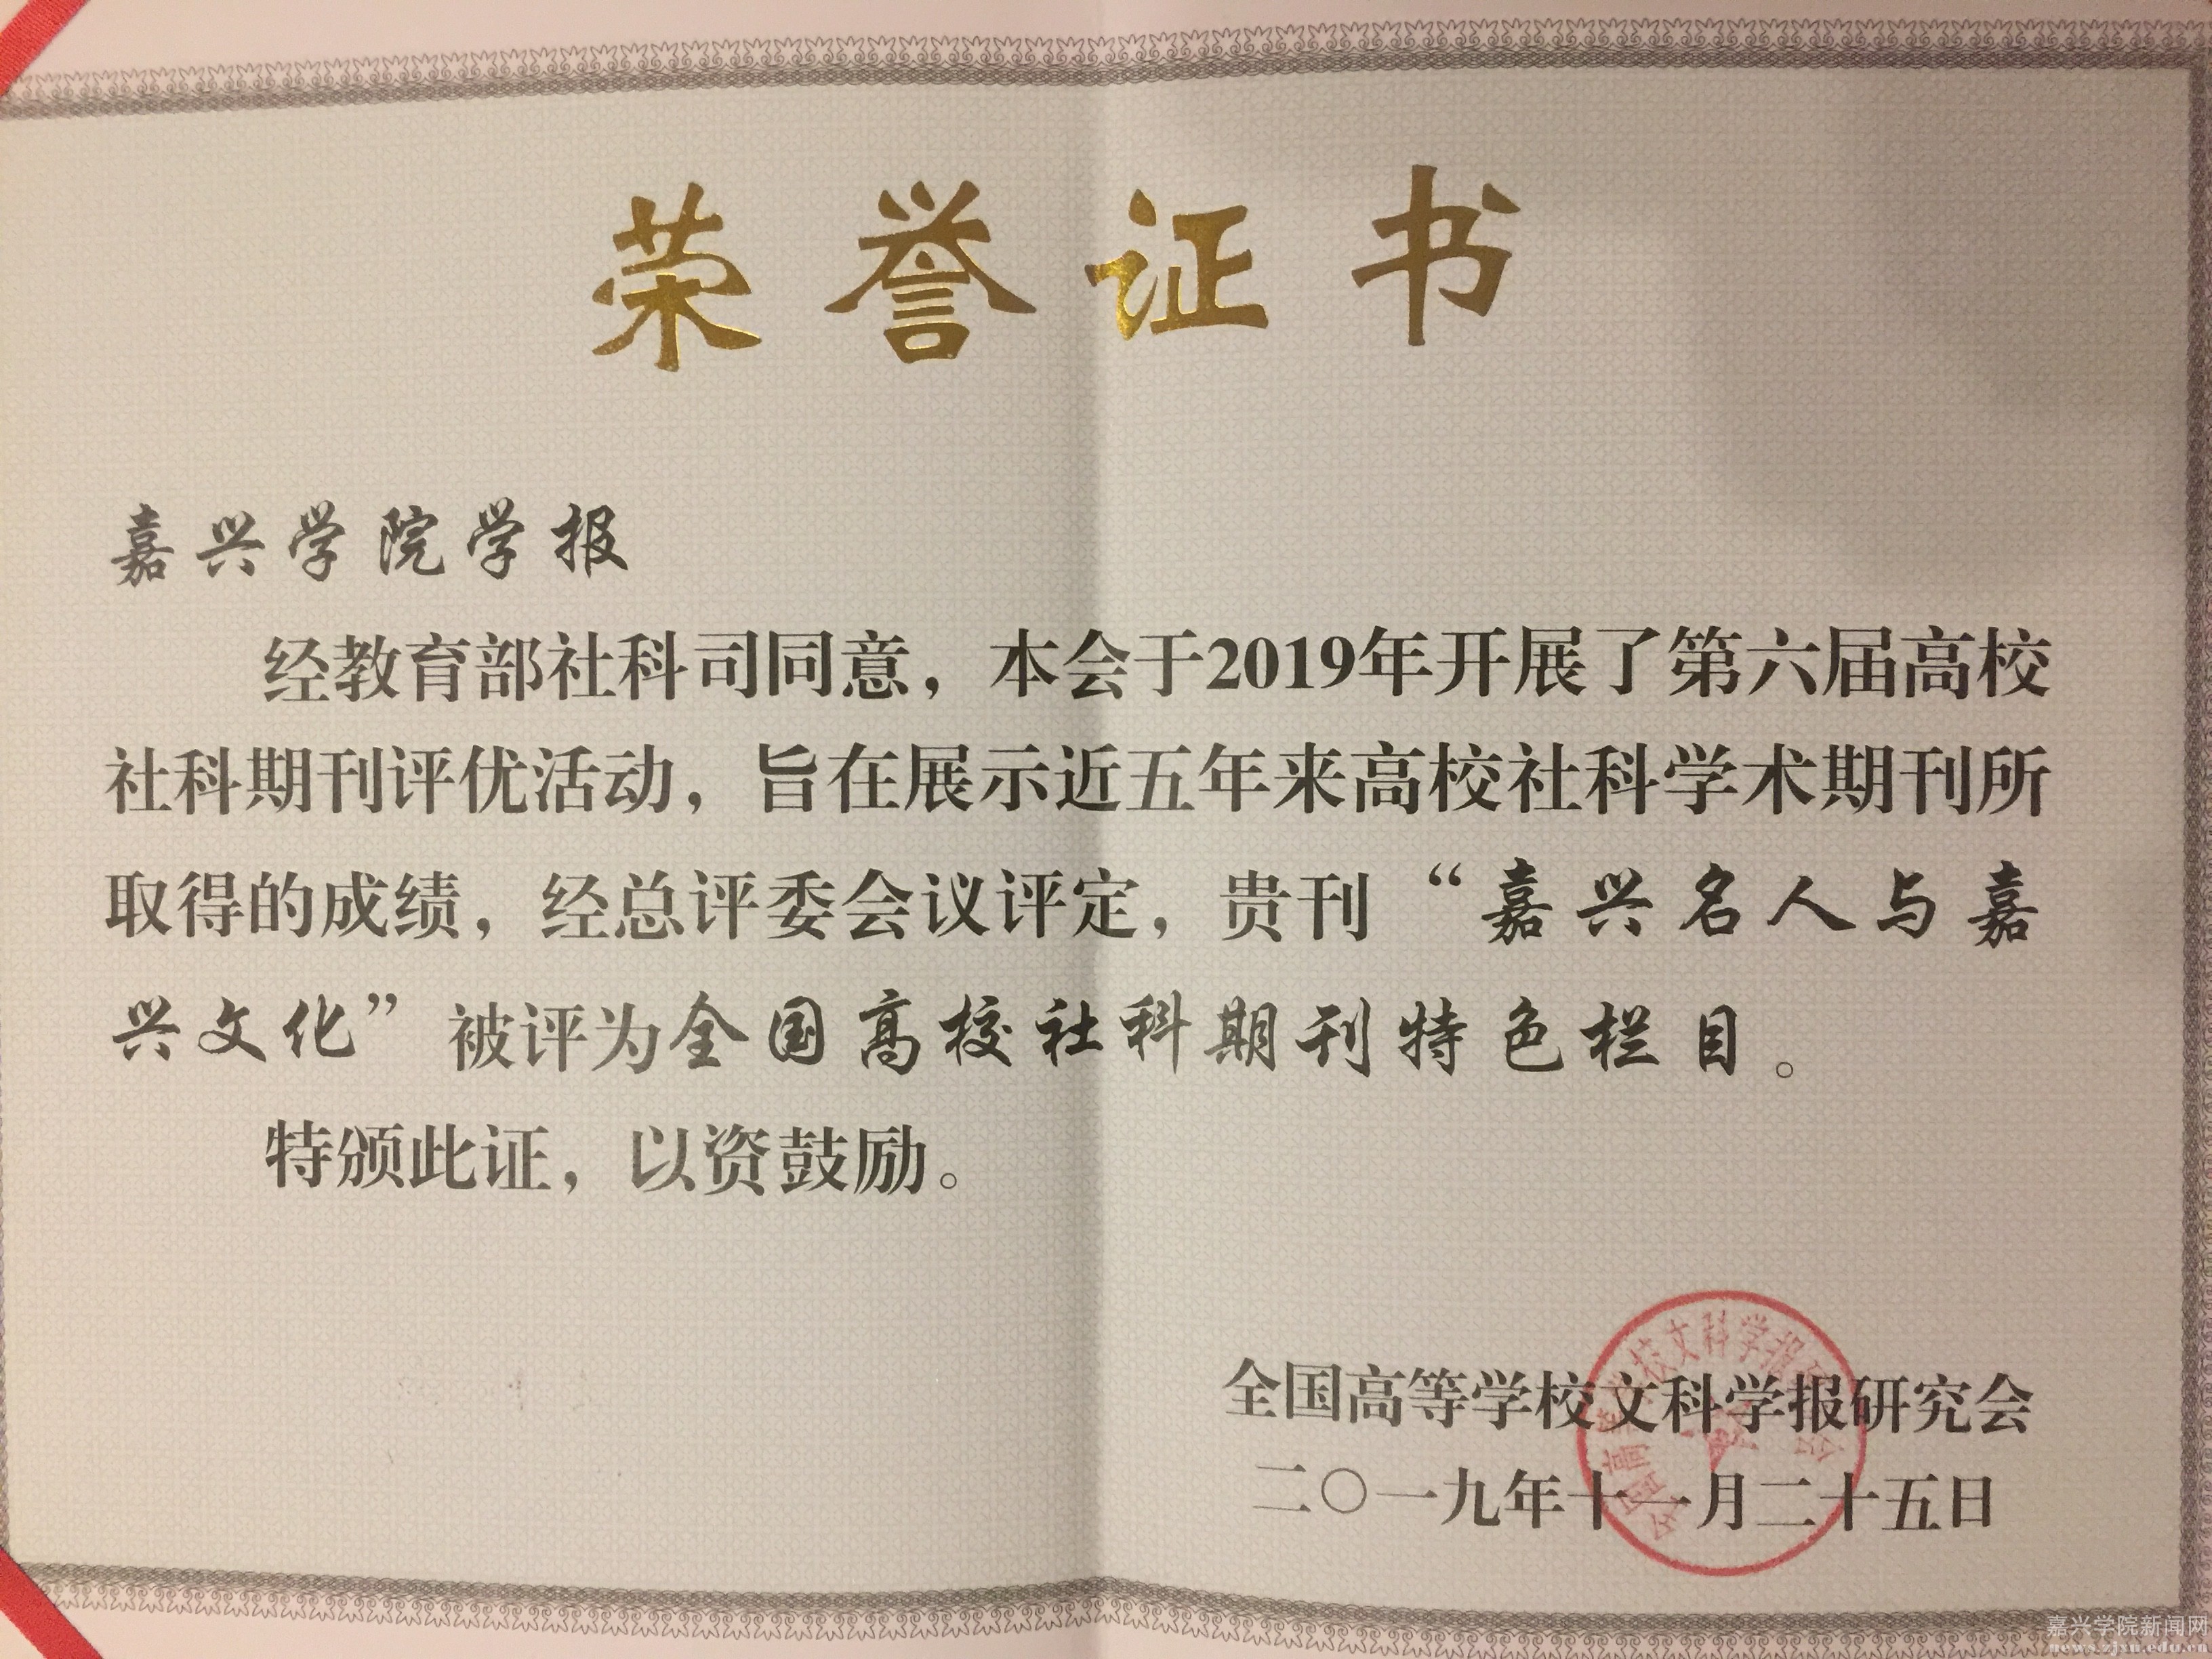 荣誉证书
嘉兴学院学报
经教育部社科司同意，本会于2019年开展了第六届高校
社科期刊评优活动，旨在展示近五年来高校社科学术期刊所
取得的成绩，经总评委会议评定，贵刊“嘉兴名人与嘉
兴文化”被评为全国高校社科期刊特色栏目。
特颁此证，以资鼓励。
全国高等学校文科学报研究会
二〇一九年十一月二十五日
全国高等学校文科学报研究会
嘉兴学院新闻网
news.zjxu.edu.cn